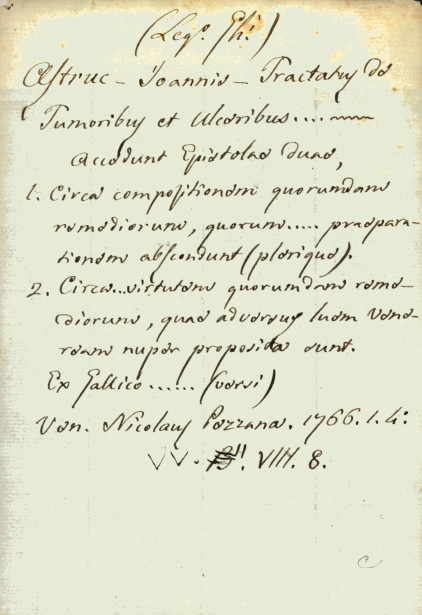 (Leg.º Ph.)
Astruc - Joannis - Tractatus de
Tumoribus et Ulceribus....
Accedunt Epistolae duae,
1. Circa compositionem quorumdam
remediorum, quorum..... praepara-
tionem abscondunt (plerique).
2. Circa...virtutem quorumdam reme-
diorum, quae adversus luem Vene-
ream nuper proposita sunt.
Ex Gallico...... (versi)
Ven. Nicolaus Pezzana. 1766. 1. 4:
VV. VIII. 8.